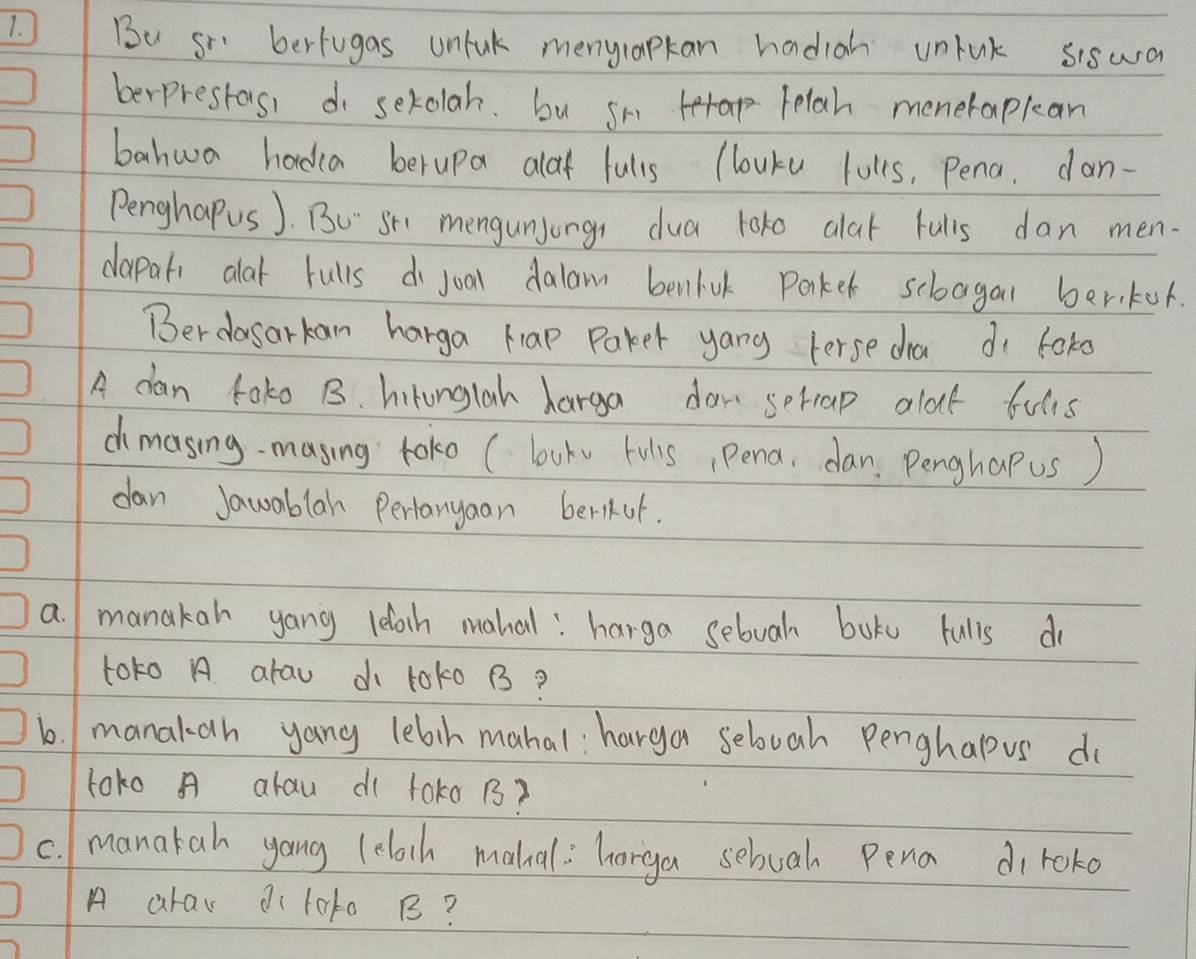 1. Bu Sri bertugas untuk menyiapkan hadiah untuk siswa
berprestasi di sekolah. bu Sri tetap telah menetapkan
bahwa hadia berupa alat tulis (buku tulis, pena, dan-
Penghapus). Bu Sri mengunjungi dua toko alat tulis dan men-
dapati alat tulis di jual dalam bentuk Paket sebagai berikut.
Berdasarkan harga tiap Paket yang tersedia di toko
A dan toko B. hitunglah harga dari setiap alat tulis
di masing-masing toko (buku tulis, pena, dan Penghapus)
dan Jawablah Pertanyaan berikut.
a. manakah yang lebih mahal: harga sebuah buku tulis di
toko A atau di toko B?
b. manakah yang lebih mahal: harga sebuah Penghapus di
toko A atau di toko B?
c. manakah yang lebih mahal: harga sebuah Pena di toko
A atau di toko B?